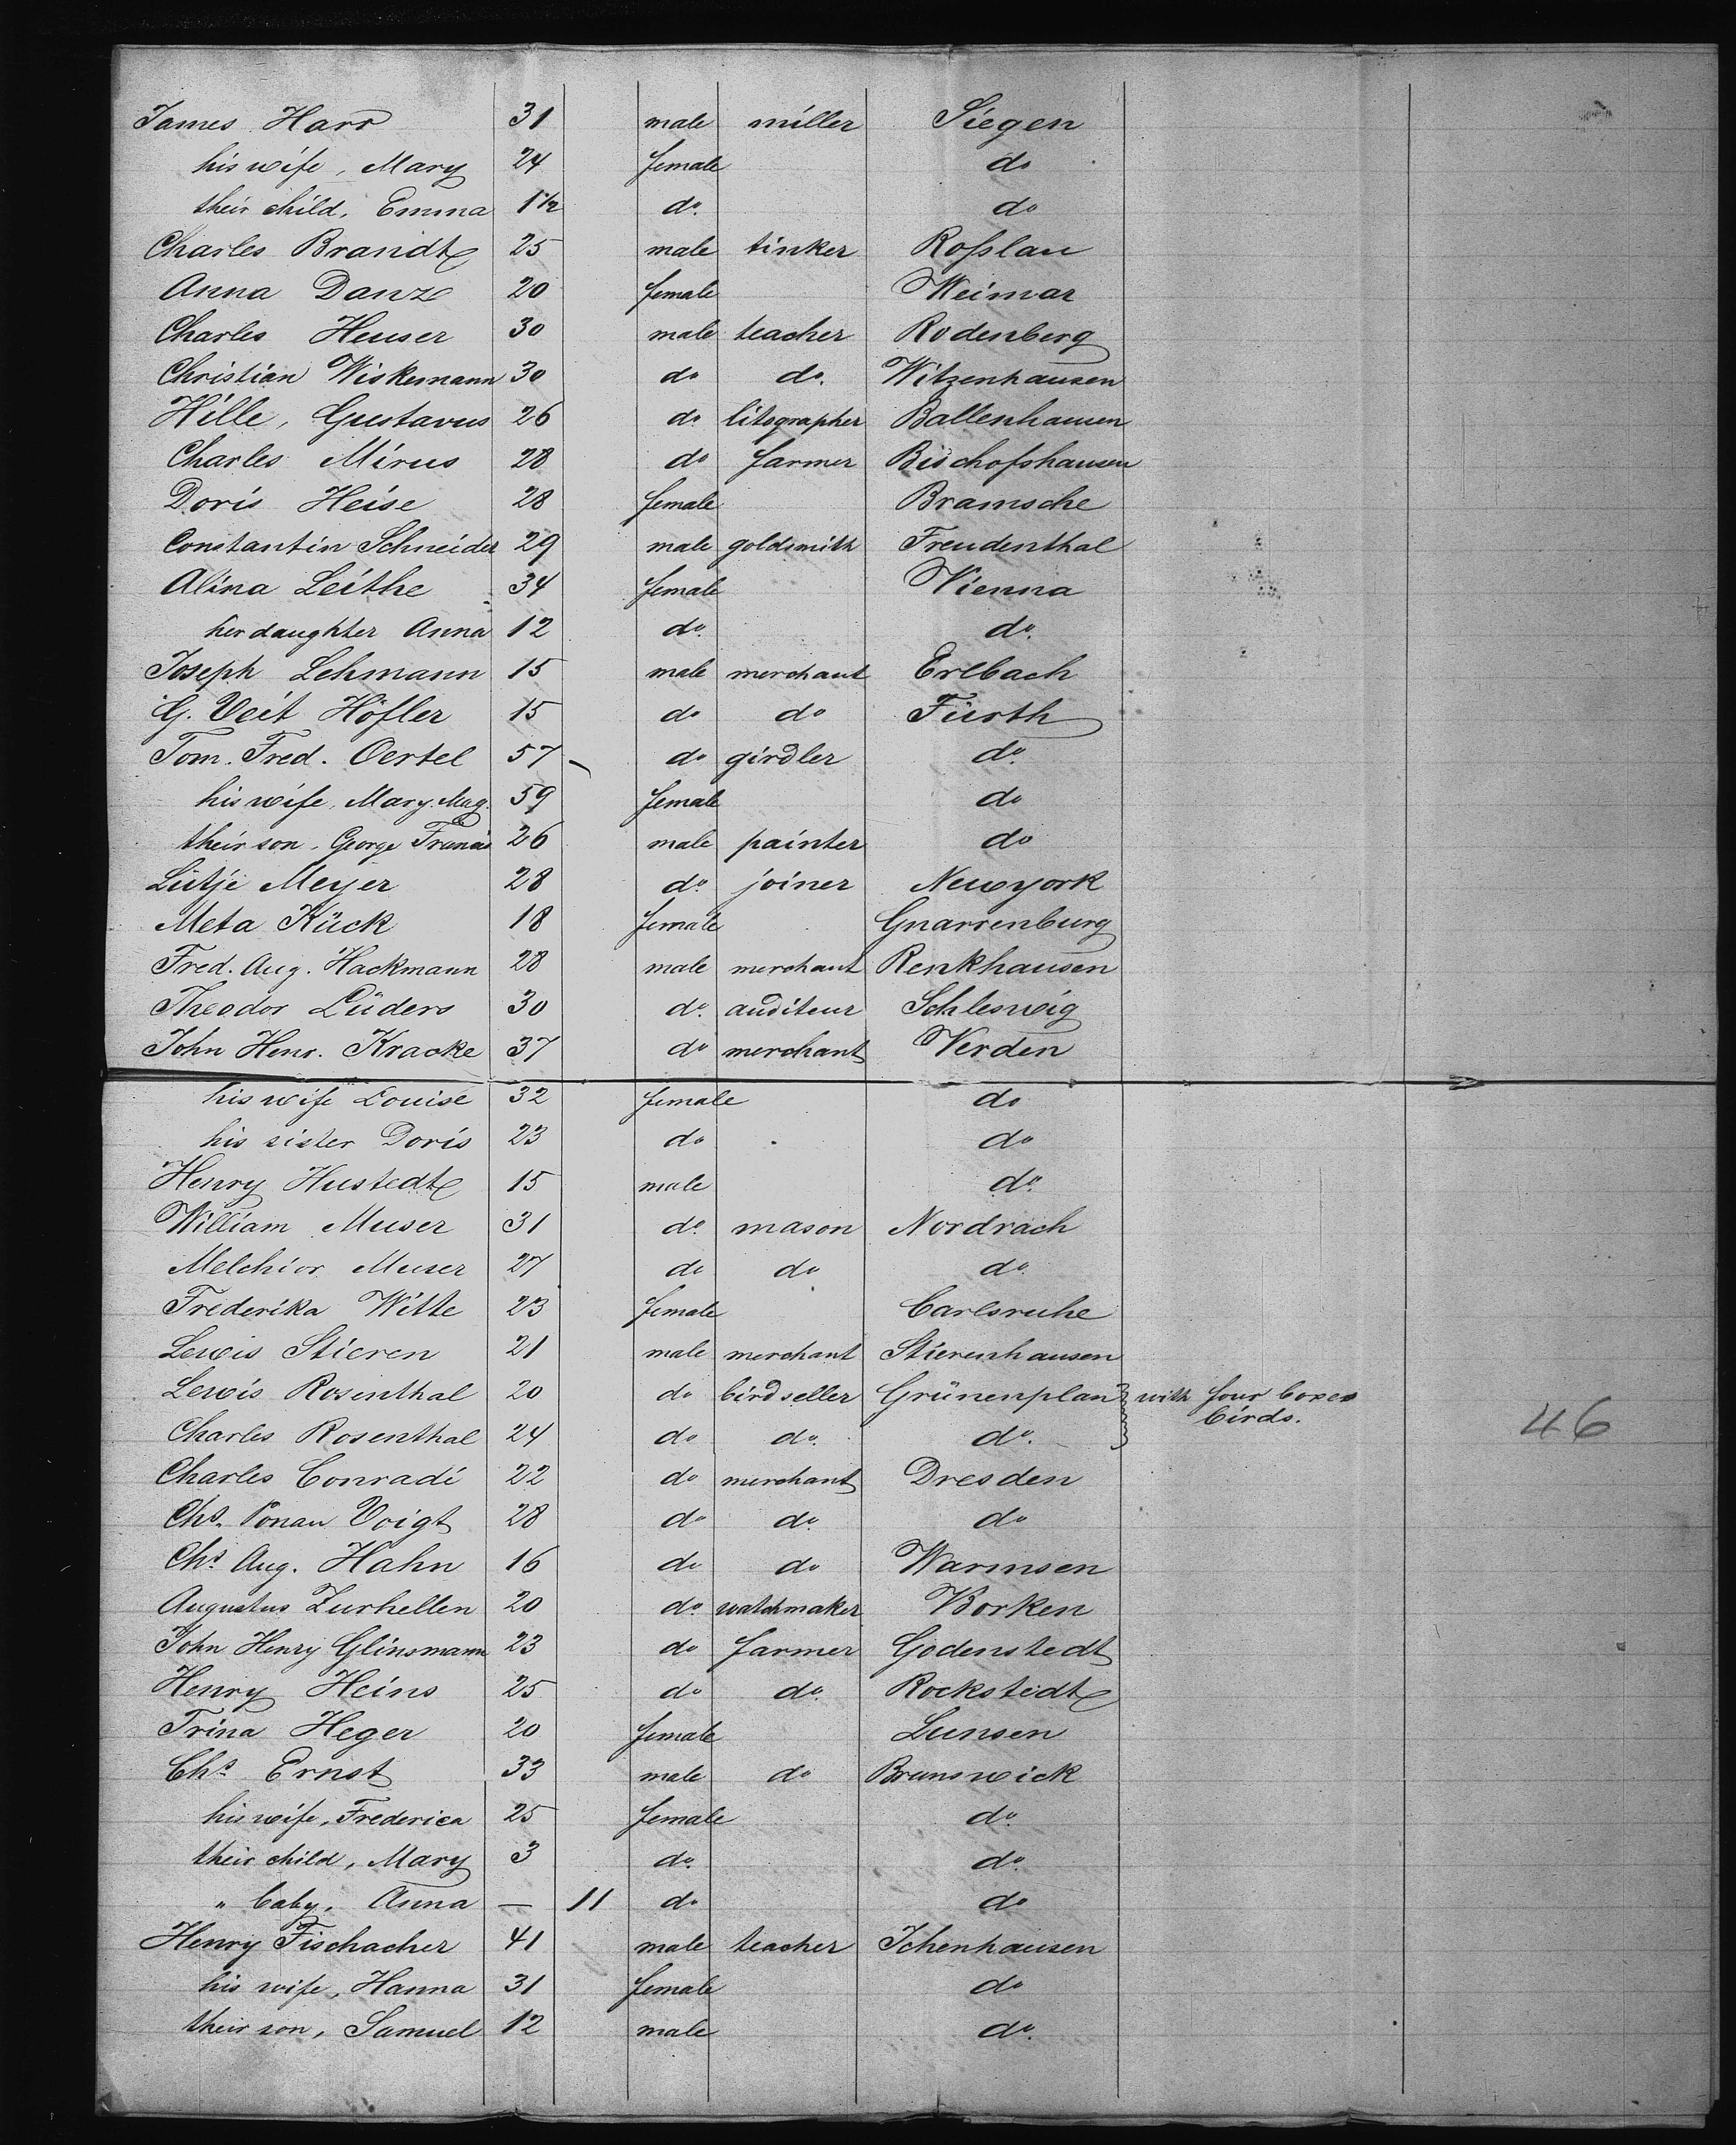 James Harr 31 male miller Siegen
his wife, Mary 24 female do
their child, Emma 1½ do. do
Charles Brandt 25 male tinker Roſslau
Anna Danz 20 female Weimar
Charles Heuser 30 male teacher Rodenberg
Christian Wiskemann 30 do do. Witzenhausen
Hille, Gustavus 26 do litographer Ballenhausen
Charles Mirus 28 do farmer Bischofshausen
Doris Heise 28 female Bramsche
Constantin Schneider 29 male goldsmith Freudenthal
Alina Leithe 34 female Vienna
her daughter Anna 12 do. do.
Joseph Lehmann 15 male merchant Erlbach
G. Veit Höfler 15 do do Fürth
Tom. Fred. Oertel 57 do girdler do.
his wife, Mary Mag. 59 female do
their son, George Francis 26 male painter do
Lütje Meyer 28 do. joiner Newyork
Meta Kück 18 female Gnarrenburg
Fred. Aug. Hackmann 28 male merchant Renkhausen
Theodor Lüders 30 do. auditeur Schleswig
John Henr. Kracke 37 do merchant Verden
his wife Louise 32 female do
his sister Doris 23 do do
Henry Hustedt 15 male do.
William Muser 31 do. mason Nordrach
Melchior Muser 27 do do do.
Frederika Witte 23 female Carlsruhe
Lewis Stieren 21 male merchant Stierenhausen
Lewis Rosenthal 20 do birdseller Grünenplan with four boxes
birds.
Charles Rosenthal 24 do do. do. 46
Charles Conradi 22 do merchant Dresden
Chs. Voigt 28 do do. do
Chs. Aug. Hahn 16 do do Warmsen
Augustus Zurhellen 20 do. watchmaker Borken
John Henry Glinsmann 23 do farmer Godenstedt
Henry Heins 25 do do. Rockstedt
Trina Heger 20 female Lunsen
Chs. Ernst 33 male do Brunswick
his wife, Frederica 25 female do.
their child, Mary 3 do. do.
" baby, Anna — 11 do do
Henry Fischacher 41 male teacher Ichenhausen
his wife, Hanna 31 female do
their son, Samuel 12 male do.